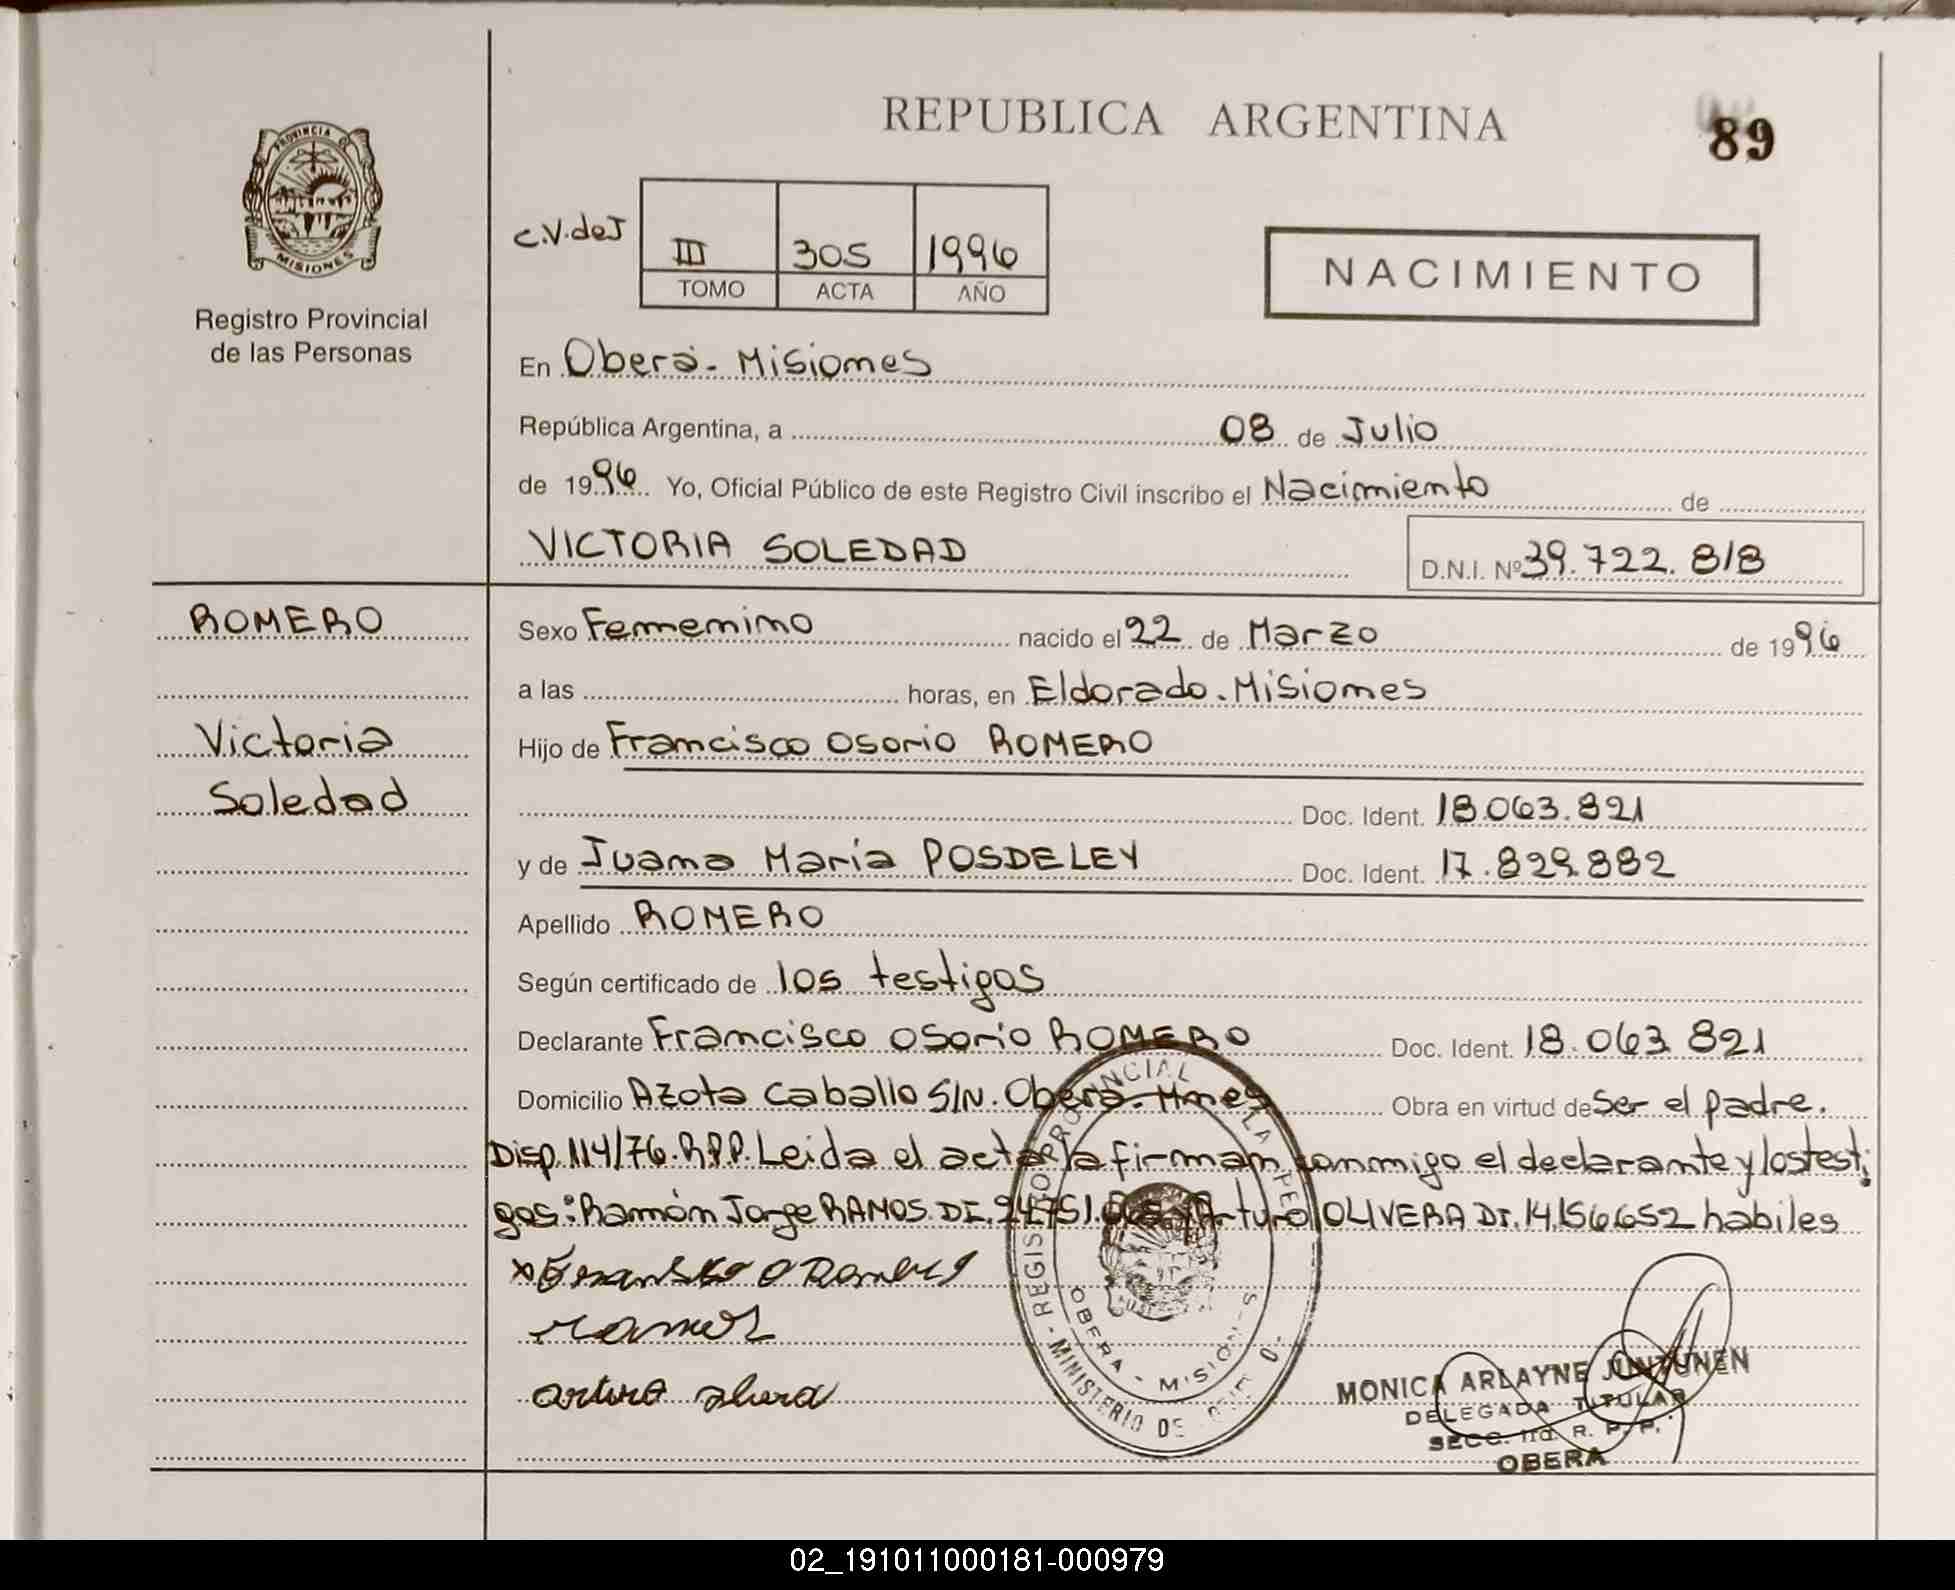 REPUBLICA ARGENTINA
89
PROVINCIA DE
MISIONES
Registro Provincial
de las Personas
C.V.deJ
III 305 1996
TOMO ACTA AÑO
NACIMIENTO
En Oberá - Misiones
República Argentina, a 08 de Julio
de 1996 Yo, Oficial Público de este Registro Civil inscribo el Nacimiento de
VICTORIA SOLEDAD
D.N.I. Nº 39.722.818
ROMERO
Victoria
Soledad
Sexo Femenino nacido el 22 de Marzo de 1996
a las horas, en Eldorado. Misiones
Hijo de Francisco Osorio ROMERO
Doc. Ident. 18.063.821
y de Juana María POSDELEY Doc. Ident. 17.829.882
Apellido ROMERO
Según certificado de los testigos
Declarante Francisco Osorio ROMERO Doc. Ident. 18.063.821
Domicilio Azota Caballo S/N. Oberá. Mnes Obra en virtud de ser el padre.
Disp. 114/76. R.P.P. Leida el acta la firman conmigo el declarante y los testi
gos: Ramón Jorge RAMOS. DI. 24.751. y Arturo OLIVERA DI. 14.156.652 habiles
ramos
arturo
REGISTRO PROVINCIAL DE LA PE
MINISTERIO DE
OBERA - MISIONES
MONICA ARLAYNE JUNTUNEN
DELEGADA TITULAR
SECC. IIa. R. P. P.
OBERA
02_191011000181-000979